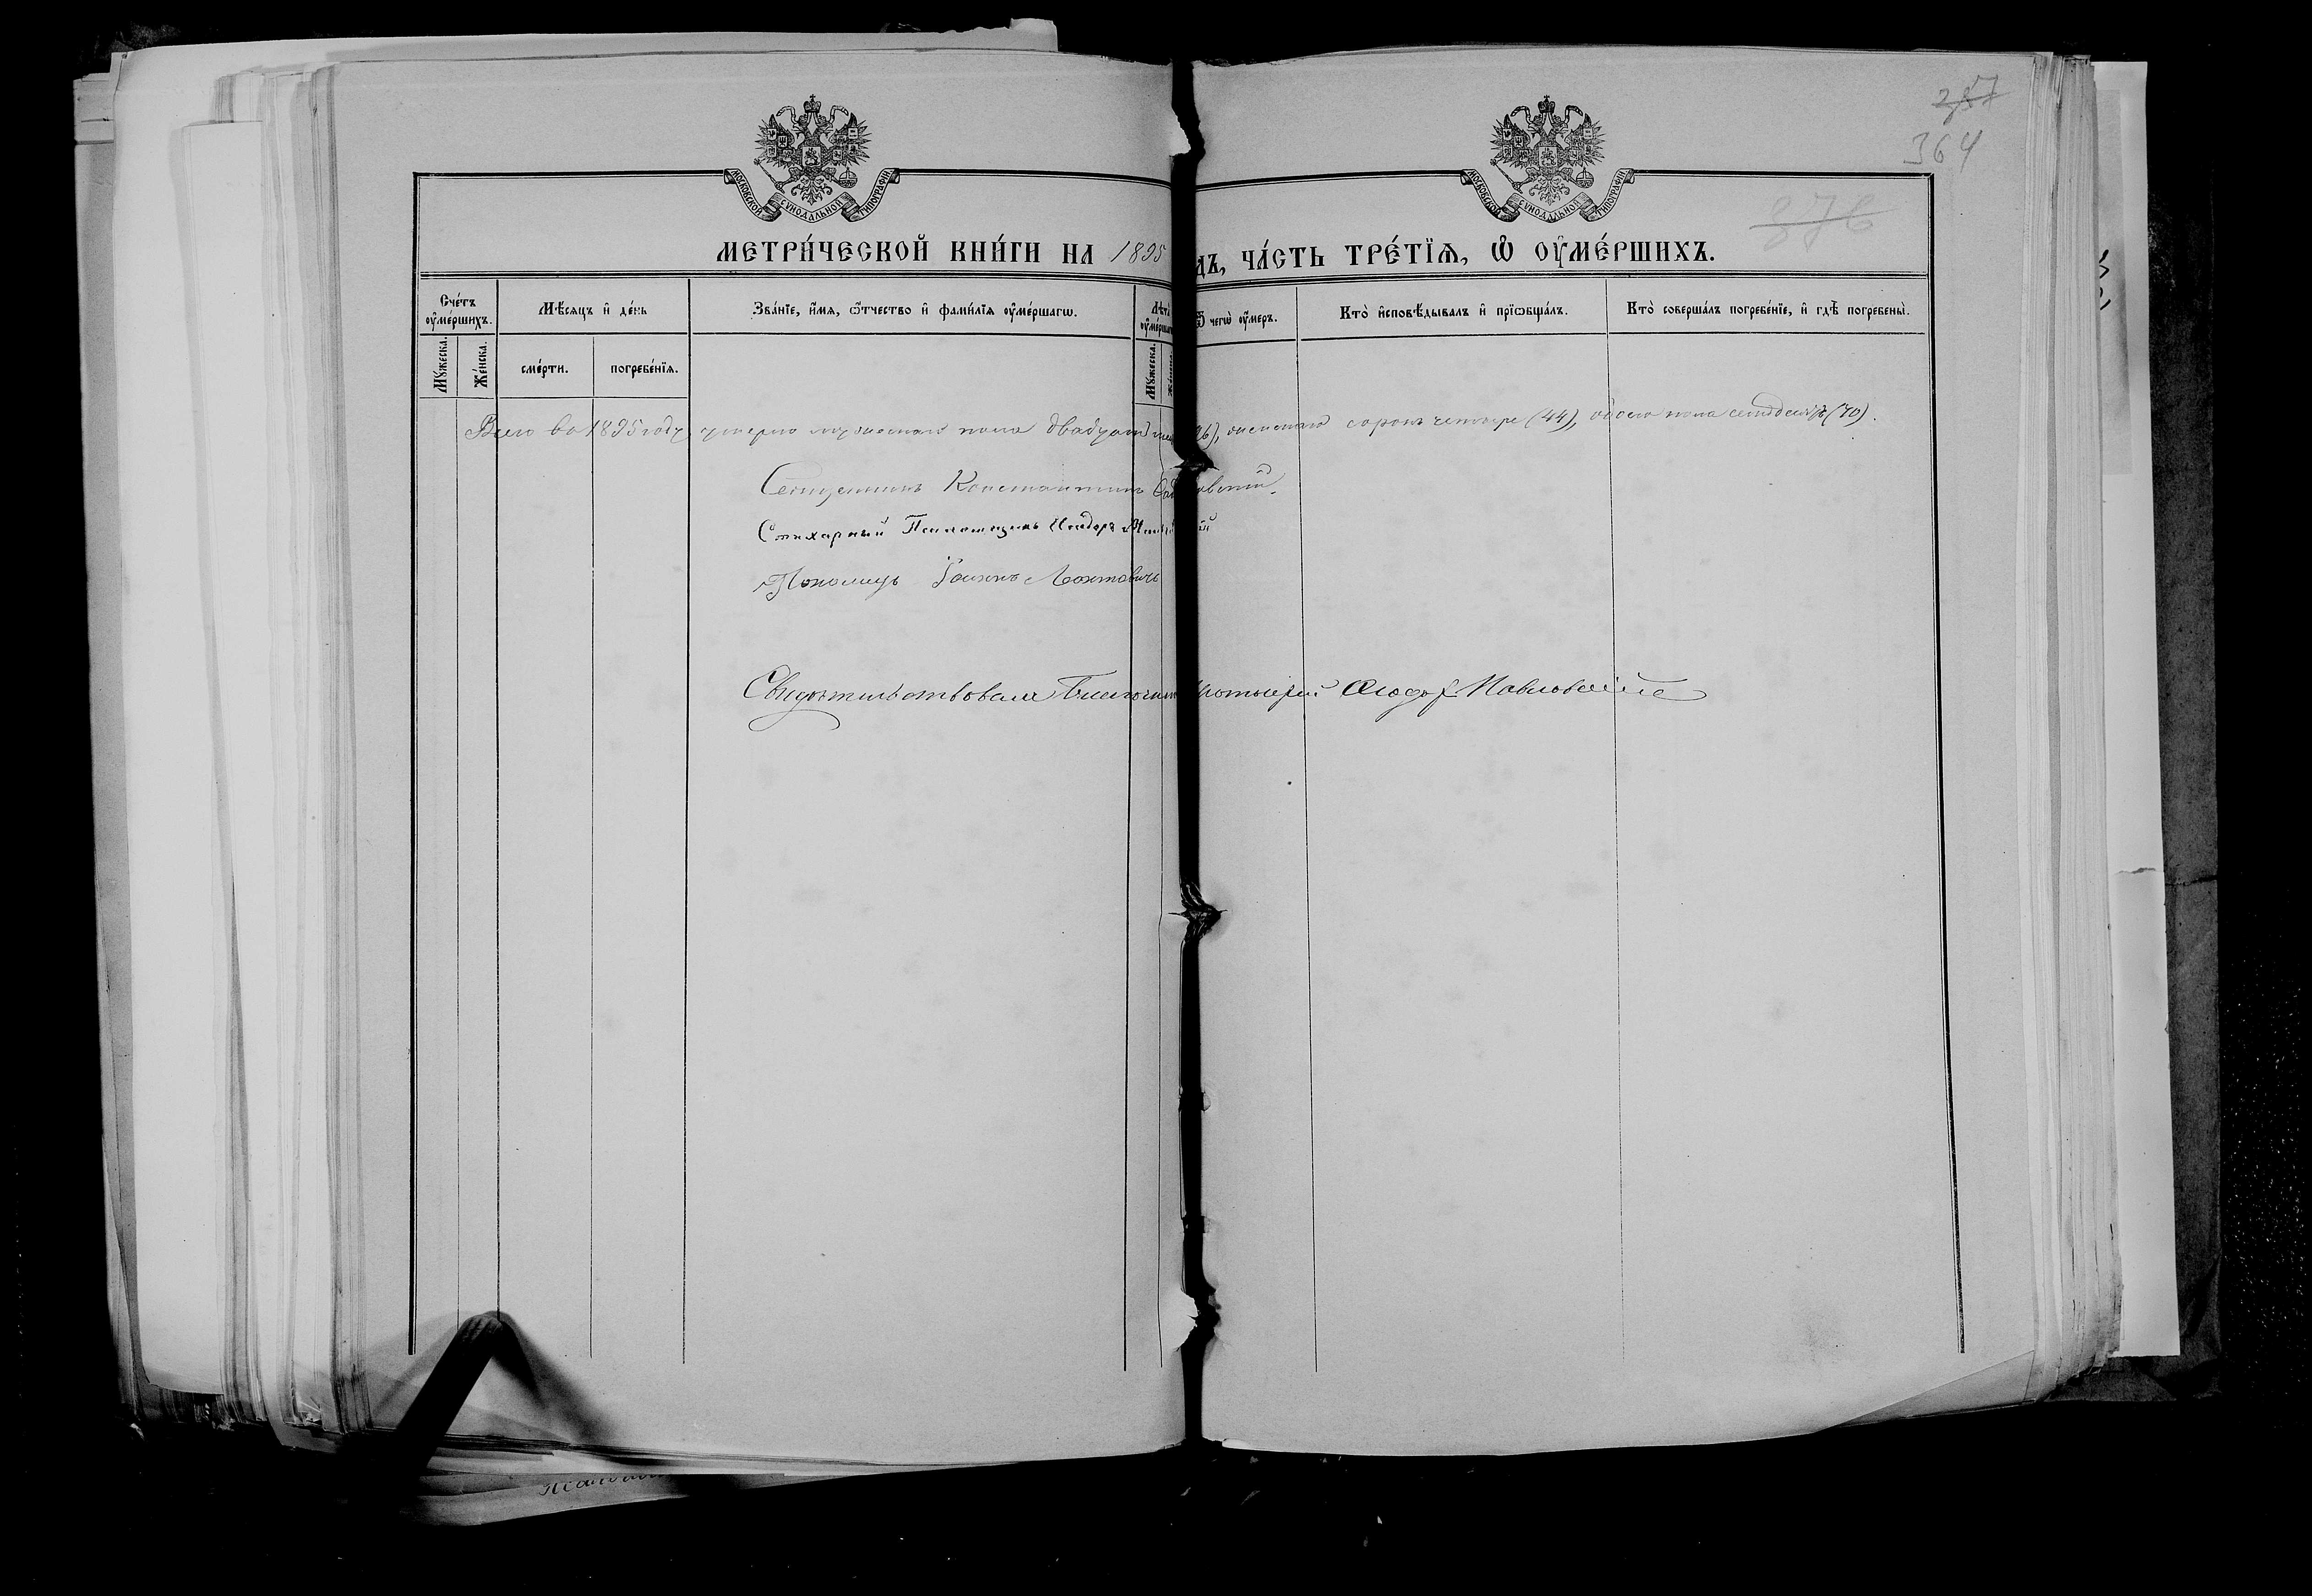 287
364
376
МОСКОВСКОЙ СѴНОДАЛЬНОЙ ТИПОГРАФІИ
МОСКОВСКОЙ СѴНОДАЛЬНОЙ ТИПОГРАФІИ
МЕТРИ́ЧЕСКОЙ КНИ́ГИ НА 1895 ДЪ, ЧА́СТЬ ТРЕ́ТЇѦ, Ѡ҆ ОУ҆МЕ́РШИХЪ.
Сче́тъ оу҆ме́ршихъ.
Мѣ́сѧцъ и҆ де́нь
Зва́нїе, и҆́мѧ, ѻ҆́тчество и҆ фами́лїѧ оу҆ме́ршагѡ.
Лѣта̀ оу҆ме́рша
Ѿ чегѡ̀ оу҆́меръ.
Кто̀ и҆сповѣ́дывалъ и҆ прїѡбща́лъ.
Кто̀ соверша́лъ погребе́нїе, и҆ гдѣ̀ погребены̀.
Мꙋ́жеска.
Же́нска.
сме́рти.
погребе́нїѧ.
Мꙋ́жеска.
Всего во 1895 году умерло мужескаго пола двадцать 26), женскаго сорокъ четыре (44), обоего пола семьдесятъ (70).
Священникъ Константинъ
Стихарный Псаломщикъ Исидоръ
Пономарь Іоаннъ Лохтовичъ
Свидѣтельствовалъ Благочинный Протоіерей Ѳеодоръ Павловичъ